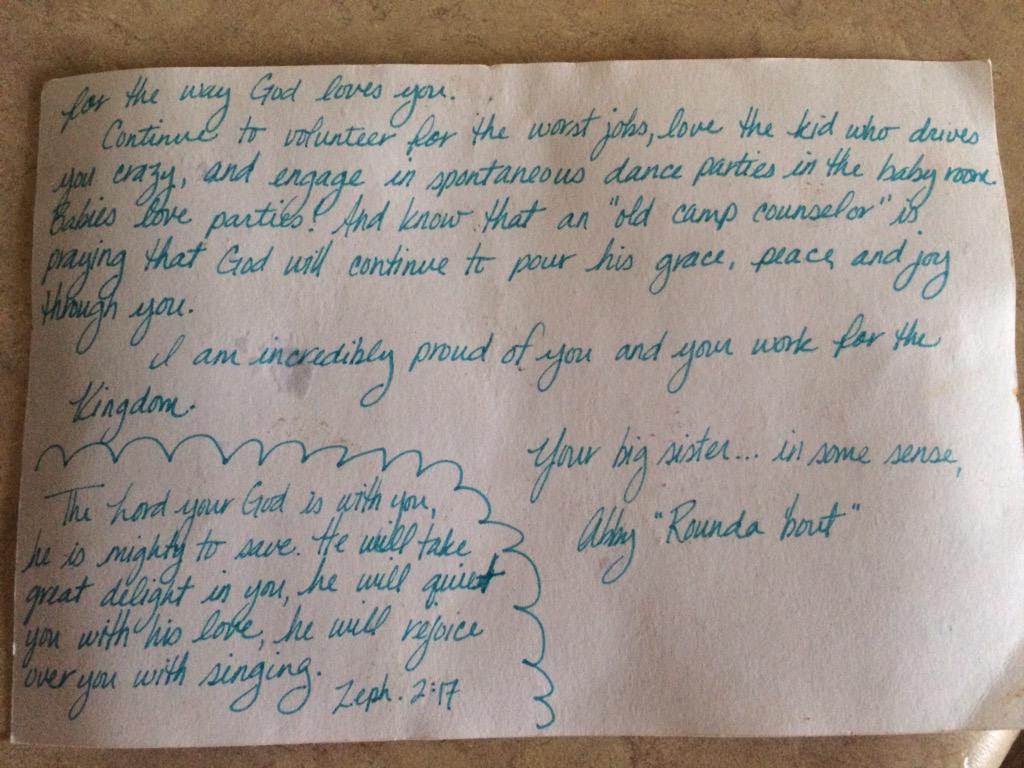 for the way God loves you.
Continue to volunteer for the worst jobs, love the kid who drives
you crazy, and engage in spontaneous dance parties in the baby room.
Babies love parties! And know that an "old camp counselor" is
praying that God will continue to pour his grace, peace, and joy
through you.
I am incredibly proud of you and your work for the
Kingdom.
Your big sister... in some sense,
Abby "Rounda 'bout"
The Lord your God is with you,
he is mighty to save. He will take
great delight in you, he will quiet
you with his love, he will rejoice
over you with singing.
Zeph. 2:17